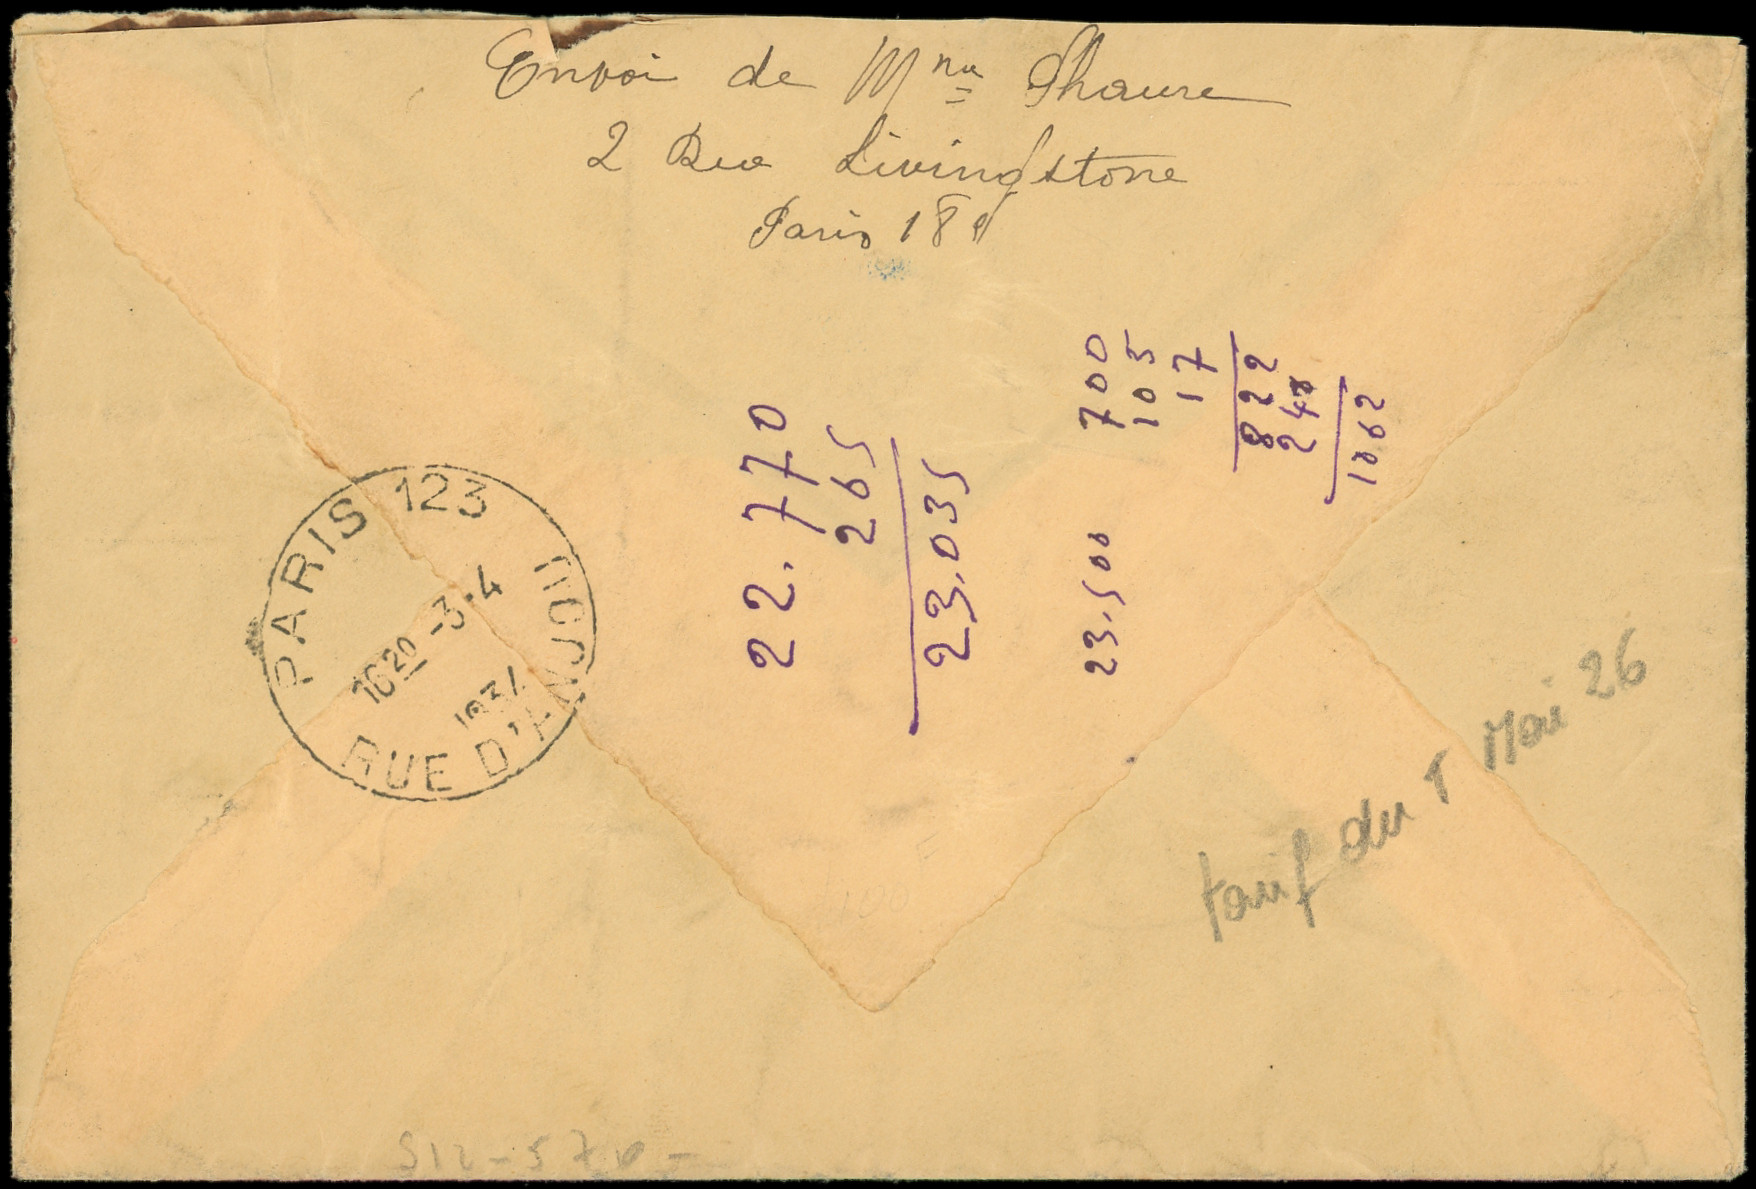 Envoi de Mme Thaure
2 Rue Livingstone
Paris 18e
PARIS 123
RUE D'ANJOU
1620 -3·4
193
22.770
265
23.035
23.500
700
105
17
822
240
1062
tarif du 1 Mai 26
100 F
512-570-